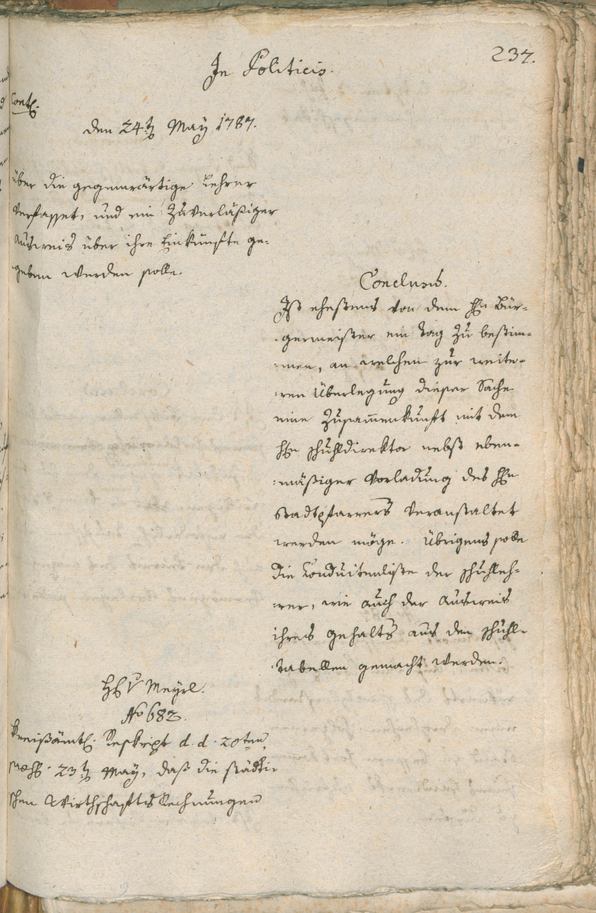 In Politicis.
237.
Cont.
den 24t May 1787.
über die gegenwärtige Lehrer
verfasset, und ein Zuverläßiger
Ausweis über ihre Einkünfte ge-
geben werden solle.
Conclusis.
Ist ehestens von dem Hn Bür-
germeister ein Tag zu bestim-
men, an welchen zur weite-
ren Überlegung dieser Sache
eine Zusamenkunft mit dem
Hn Schuldirektor nebst eben-
mäßiger Vorladung des Hn
Stadtpfarrers veranstaltet
werden möge. Übrigens solle
die Conduitenliste der Schulleh-
rer, wie auch der Ausweis
ihres Gehalts aus den Schul-
tabellen gemacht werden.
Meyrl.
No 682.
Kreisämtl. Reskript d. d. 20ten
23t May, daß die städti-
schen Wirthschafts Rechnungen